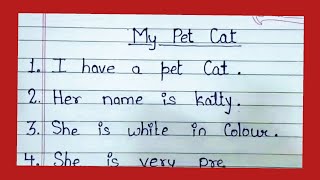 My Pet Cat
1. I have a pet Cat.
2. Her name is katty.
3. She is white in Colour.
4. She is very pre